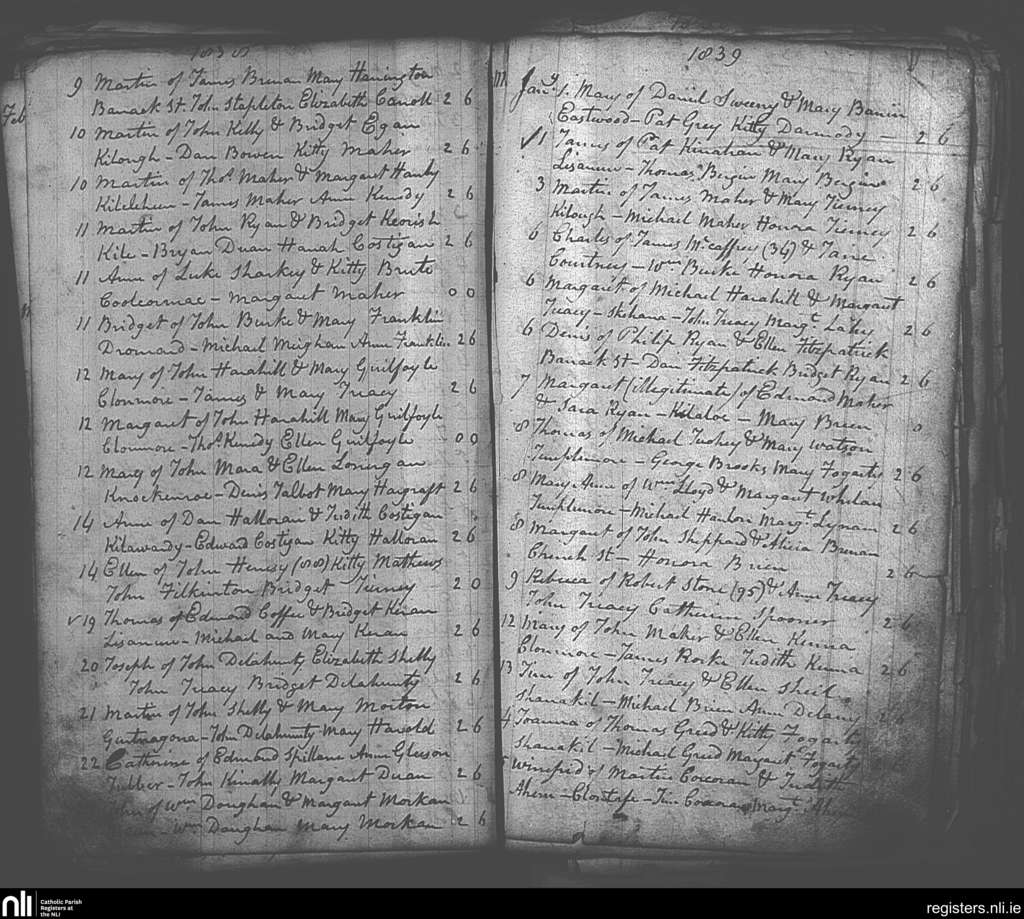 1838
9 Martin of James Brenan Mary Harrington
Barrack St John Stapleton Elizabeth Carroll 2 6
Feb
10 Martin of John Kelly & Bridget Egan
Kilough - Dan Bowen Kitty Maher 2 6
10 Martin of Thos Maher & Margaret Hanly
Kilcleheen - James Maher Anne Kenedy 2 6
11 Martin of John Ryan & Bridget Keorish
Kile - Bryan Duan Hanah Costigan 2 6
11 Anne of Luke Sharkey & Kitty Brute
Coolcormac - Margaret Maher 0 0
11 Bridget of John Burke & Mary Franklin
Dromard - Michael Meighan Anne Franklin 2 6
12 Mary of John Harahill & Mary Guilfoyle
Clonmore - James & Mary Treacy 2 6
12 Margaret of John Harahill Mary Guilfoyle
Clonmore - Thos Kenedy Ellen Guilfoyle 0 0
12 Mary of John Mara & Ellen Lonergan
Knockenroe - Denis Talbot Mary Hargraft 2 6
14 Anne of Dan Halloran & Judith Costigan
Kilawardy - Edward Costigan Kitty Halloran 2 6
14 Ellen of John Henesy (88) Kitty Mathews
John Filkinton Bridget Tierney 2 0
√ 19 Thomas of Edmond Coffee & Bridget Keran
Lisanure - Michael and Mary Keran 2 6
20 Joseph of John Delahunty Elizabeth Shelly
John Treacy Bridget Delahunty 2 6
21 Martin of John Shelly & Mary Morton
Gurtnagona - John Delahunty Mary Harold 2 6
22 Catherine of Edmond Spillane Anne Gleeson
Tubber - John Kinally Margaret Duan 2 6
John of Wm Doughan & Margaret Morkan
- Wm Doughan Mary Morkan 2 6
1839
Jany 1. Mary of Daniel Sweeny & Mary Banin
Eastwood - Pat Grey Kitty Darmody - 2 6
√ 1 James of Pat Kinahan & Mary Ryan
Lisanure - Thomas Bergin Mary Bergin 2 6
3 Martin of James Maher & Mary Tierney
Kilough - Michael Maher Honora Tierney 2 6
6 Charles of James McCaffrey (34) & Jane
Courtney - Wm Burke Honora Ryan 2 6
6 Margaret of Michael Harahill & Margaret
Treacy - Skehana - John Treacy Margt Lahy 2 6
6 Denis of Philip Ryan & Ellen Fitzpatrick
Barrack St - Dan Fitzpatrick Bridget Ryan 2 6
7 Margaret (illegitimate) of Edmond Maher
& Sara Ryan - Kilaloe - Mary Brien 0
8 Thomas of Michael Tuohey & Mary Watson
Templemore - George Brooks Mary Fogarty 2 6
8 Mary Anne of Wm Lloyd & Margaret Whelan
Templemore - Michael Hanlon Margt Lynam 2 6
8 Margaret of John Sheppard & Alicia Brenan
Church St - Honora Brien 2 6
9 Rebecca of Robert Stone (95) & Anne Treacy
John Treacy Catherine Spooner 2 6
12 Mary of John Maher & Ellen Kenna
Clonmore - James Rorke Judith Kenna 2 6
13 Tim of John Treacy & Ellen Sheil
Shanakil - Michael Brien Anne Delany 2 6
Joanna of Thomas Greed & Kitty Fogarty
Shanakil - Michael Greed Margaret Fogarty
Winefrid of Martin Corcoran & Judith
Ahern - Clostafe - Tim Corcoran Margt
nli Catholic Parish
Registers at
the NLI
registers.nli.ie